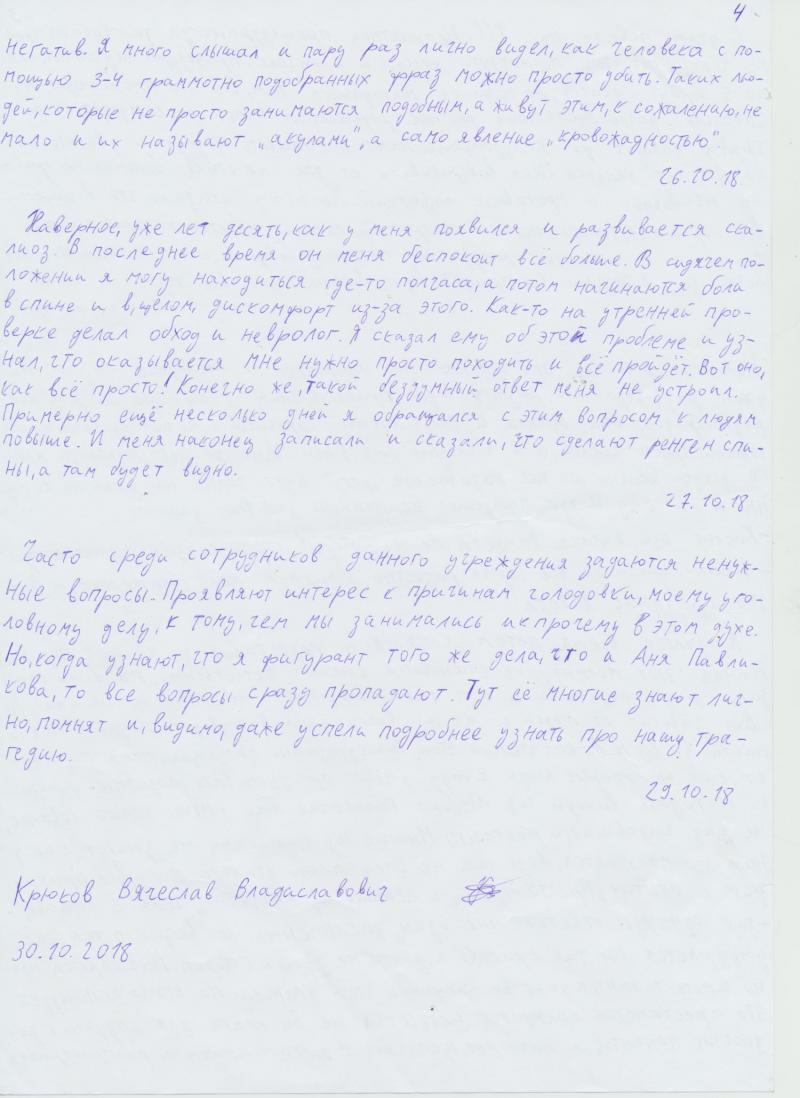 4
негатив. Я много слышал и пару раз лично видел, как человека с по-
мощью 3-4 граммотно подобранных фраз можно просто убить. Таких лю-
дей, которые не просто занимаются подобным, а живут этим, к сожалению, не
мало и их называют „акулами", а само явление „кровожадностью".
26.10.18
Наверное, уже лет десять, как у меня появился и развивается ска-
лиоз. В последнее время он меня беспокоит всё больше. В сидячем по-
ложении я могу находиться где-то полчаса, а потом начинаются боли
в спине и в, целом, дискомфорт из-за этого. Как-то на утренней про-
верке делал обход и невролог. Я сказал ему об этой проблеме и уз-
нал, что оказывается мне нужно просто походить и всё пройдёт. Вот оно,
как всё просто! Конечно же, такой бездумный ответ меня не устроил.
Примерно ещё несколько дней я обращался с этим вопросом к людям
повыше. И меня наконец записали и сказали, что сделают ренген спи-
ны, а там будет видно.
27.10.18
Часто среди сотрудников данного учреждения задаются ненуж-
ные вопросы. Проявляют интерес к причинам голодовки, моему уго-
ловному делу, к тому, чем мы занимались и к прочему в этом духе.
Но, когда узнают, что я фигурант того же дела, что и Аня Павли-
кова, то все вопросы сразу пропадают. Тут её многие знают лич-
но, помнят и, видимо, даже успели подробнее узнать про нашу тра-
гедию.
29.10.18
Крюков Вячеслав Владиславович
30.10.2018